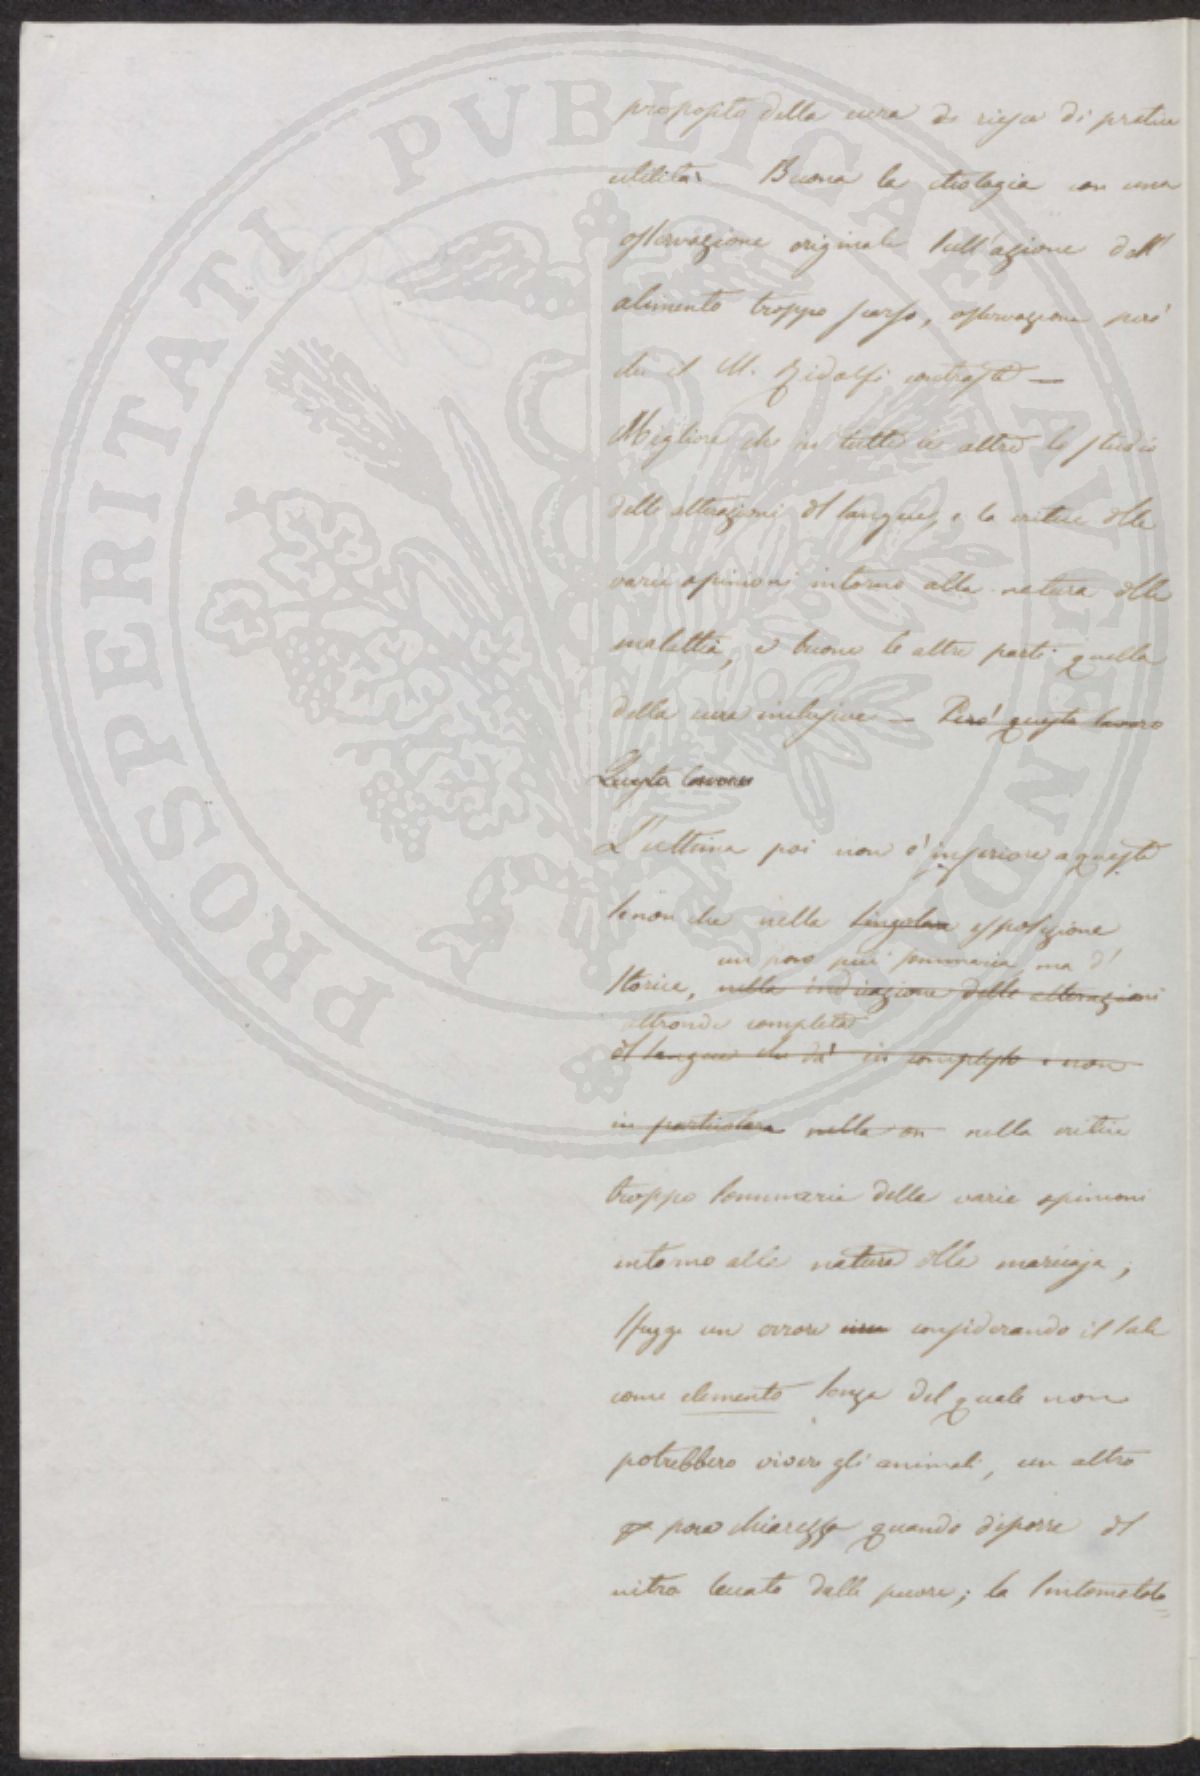 PROSPERITATI PVBLICAE AVGENDAE
proposito della cura di riesca di pratica
utilità. Buona la etiologia con una
osservazione originale sull'azione dell'
alimento troppo scarso, osservazione però
che il M. Ridolfi contrasta —
Migliore che in tutte le altre lo studio
delle alterazioni del sangue, e la critica delle
varie opinioni intorno alla natura della
malattia, e buone le altre parti quella
della cura inclusive — Però questo lavoro
Questo lavoro
L'ultima poi non è inferiore a questa
senon che nella singolare esposizione
un poco più sommaria, ma d'
storica, nella indicazione delle alterazioni
altronde completa
del sangue che dà in complesso e non
in particolare nella on nella critica
troppo sommaria delle varie opinioni
intorno alla natura della marciaja;
sfugge un errore considerando il sale
come elemento senza del quale non
potrebbero vivere gli animali, un altro
poca chiarezza quando discorre del
nitro leccato dalle pecore; la sintomatolo=